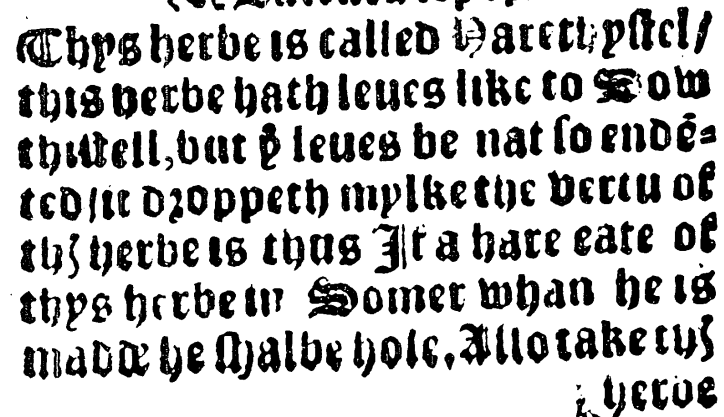 Thys herbe is called Harethystel/
this herbe hath leues like to Sow
thistell, but yͤ leues be nat so endē⸗
ted/it droppeth mylke the vertu of
thꝭ herbe is thus If a hare eate of
thys herbe in Somer whan he is
madde he shalbe hole. Also take thꝭ
herbe